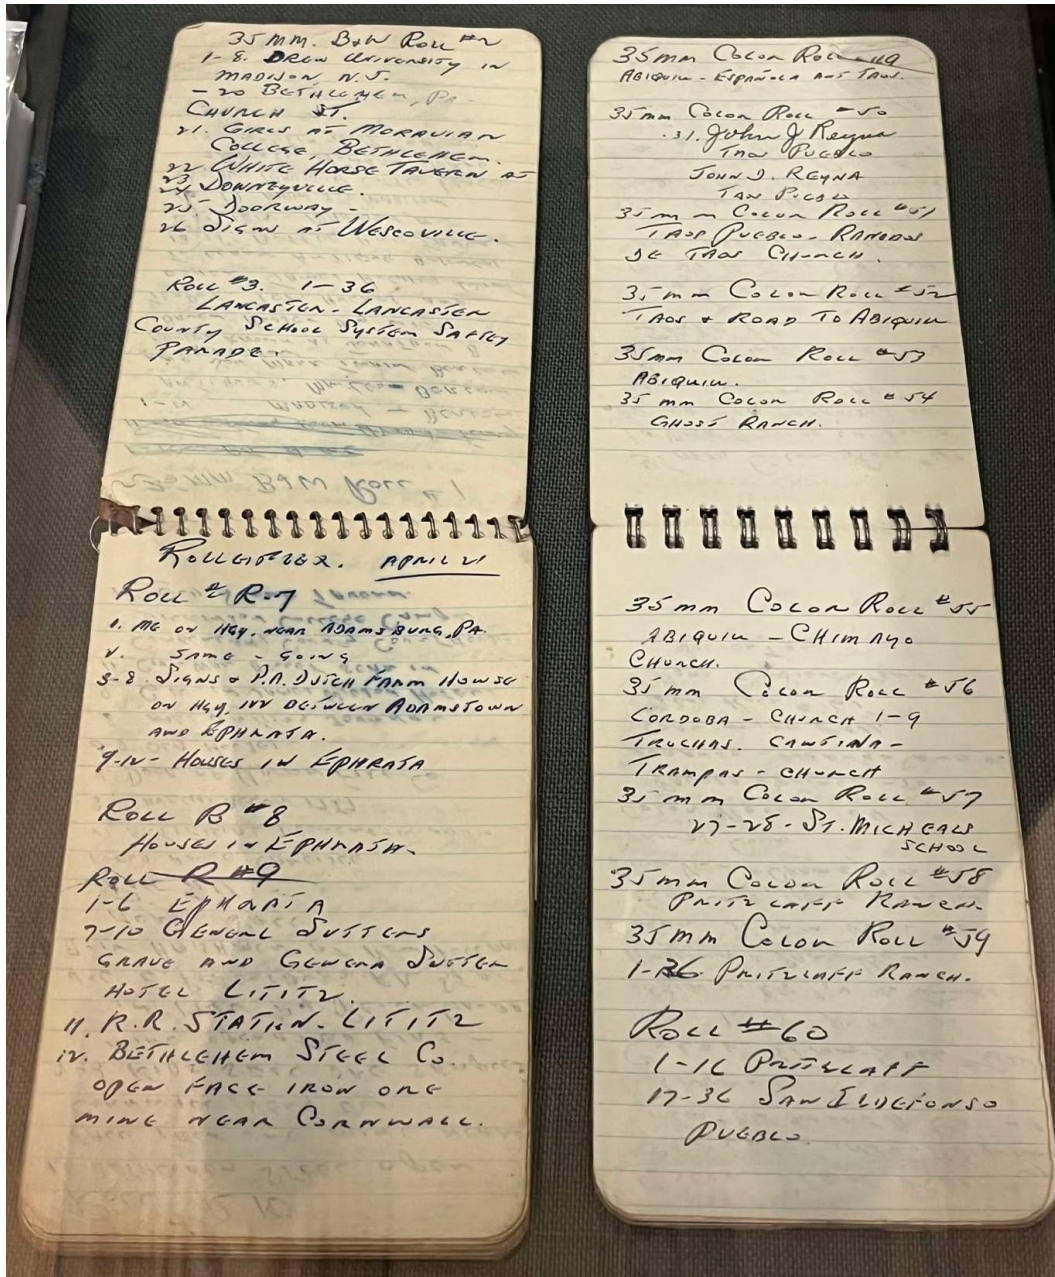 35MM. B+W ROLL #2
1-8. DREW UNIVERSITY IN
MADISON N.J.
-20 BETHLEHEM, PA-
CHURCH ST.
21. GIRLS AT MORAVIAN
COLLEGE, BETHLEHEM.
22 WHITE HORSE TAVERN AT
23
24 DOWNEYVILLE.
25 DOORWAY-
26 SIGNS AT WESCOVILLE.
ROLL #3. 1-36
LANCASTER- LANCASTER
COUNTY SCHOOL SYSTEM SAFETY
PARADE-
ROLLEIFLEX. APRIL 21
ROLL # R-7
1. ME ON HGY. NEAR ADAMSBURG, PA.
2. SAME - GOING
3-8. SIGNS + P.A. DUTCH FARM HOUSE
ON HGY. 122 BETWEEN ADAMSTOWN
AND EPHRATA.
9-12- HOUSES IN EPHRATA
ROLL B #8
HOUSES IN EPHRATA-
ROLL R #9
1-6 EPHRATA
7-10 GENERL SUTTERS
GRAVE AND GENERA SUTTER
HOTEL LITITZ.
11. R.R. STATION- LITITZ
12. BETHLEHEM STEEL CO.
OPEN FACE IRON ORE
MINE NEAR CORNWALL.
35mm COLOR ROLL #49
ABIQUIU - ESPAÑOLA AND TAOS.
35mm COLOR ROLL #50
31. John J Reyna
TAOS PUEBLO
JOHN J. REYNA
TAOS
35mm COLOR ROLL #51
TAOS PUEBLO- RANCHOS
DE TAOS CHURCH.
35mm COLOR ROLL #52
TAOS + ROAD TO ABIQUIU
35mm COLOR ROLL #53
ABIQUIU.
35 mm COLOR ROLL #54
GHOST RANCH.
35mm COLOR ROLL #55
ABIQUIU - CHIMAYO
CHURCH.
35mm COLOR ROLL #56
CORDOBA - CHURCH 1-9
TRUCHAS. CANTINA-
TRAMPAS - CHURCH
35mm COLOR ROLL #57
27-28- ST. MICHEALS
SCHOOL
35mm COLOR ROLL #58
PRITZLAFF RANCH.
35MM COLOR ROLL #59
1-36 PRITZLAFF RANCH.
ROLL #60
1-16 PRITZLAFF
17-36 SAN ILDEFONSO
PUEBLO.